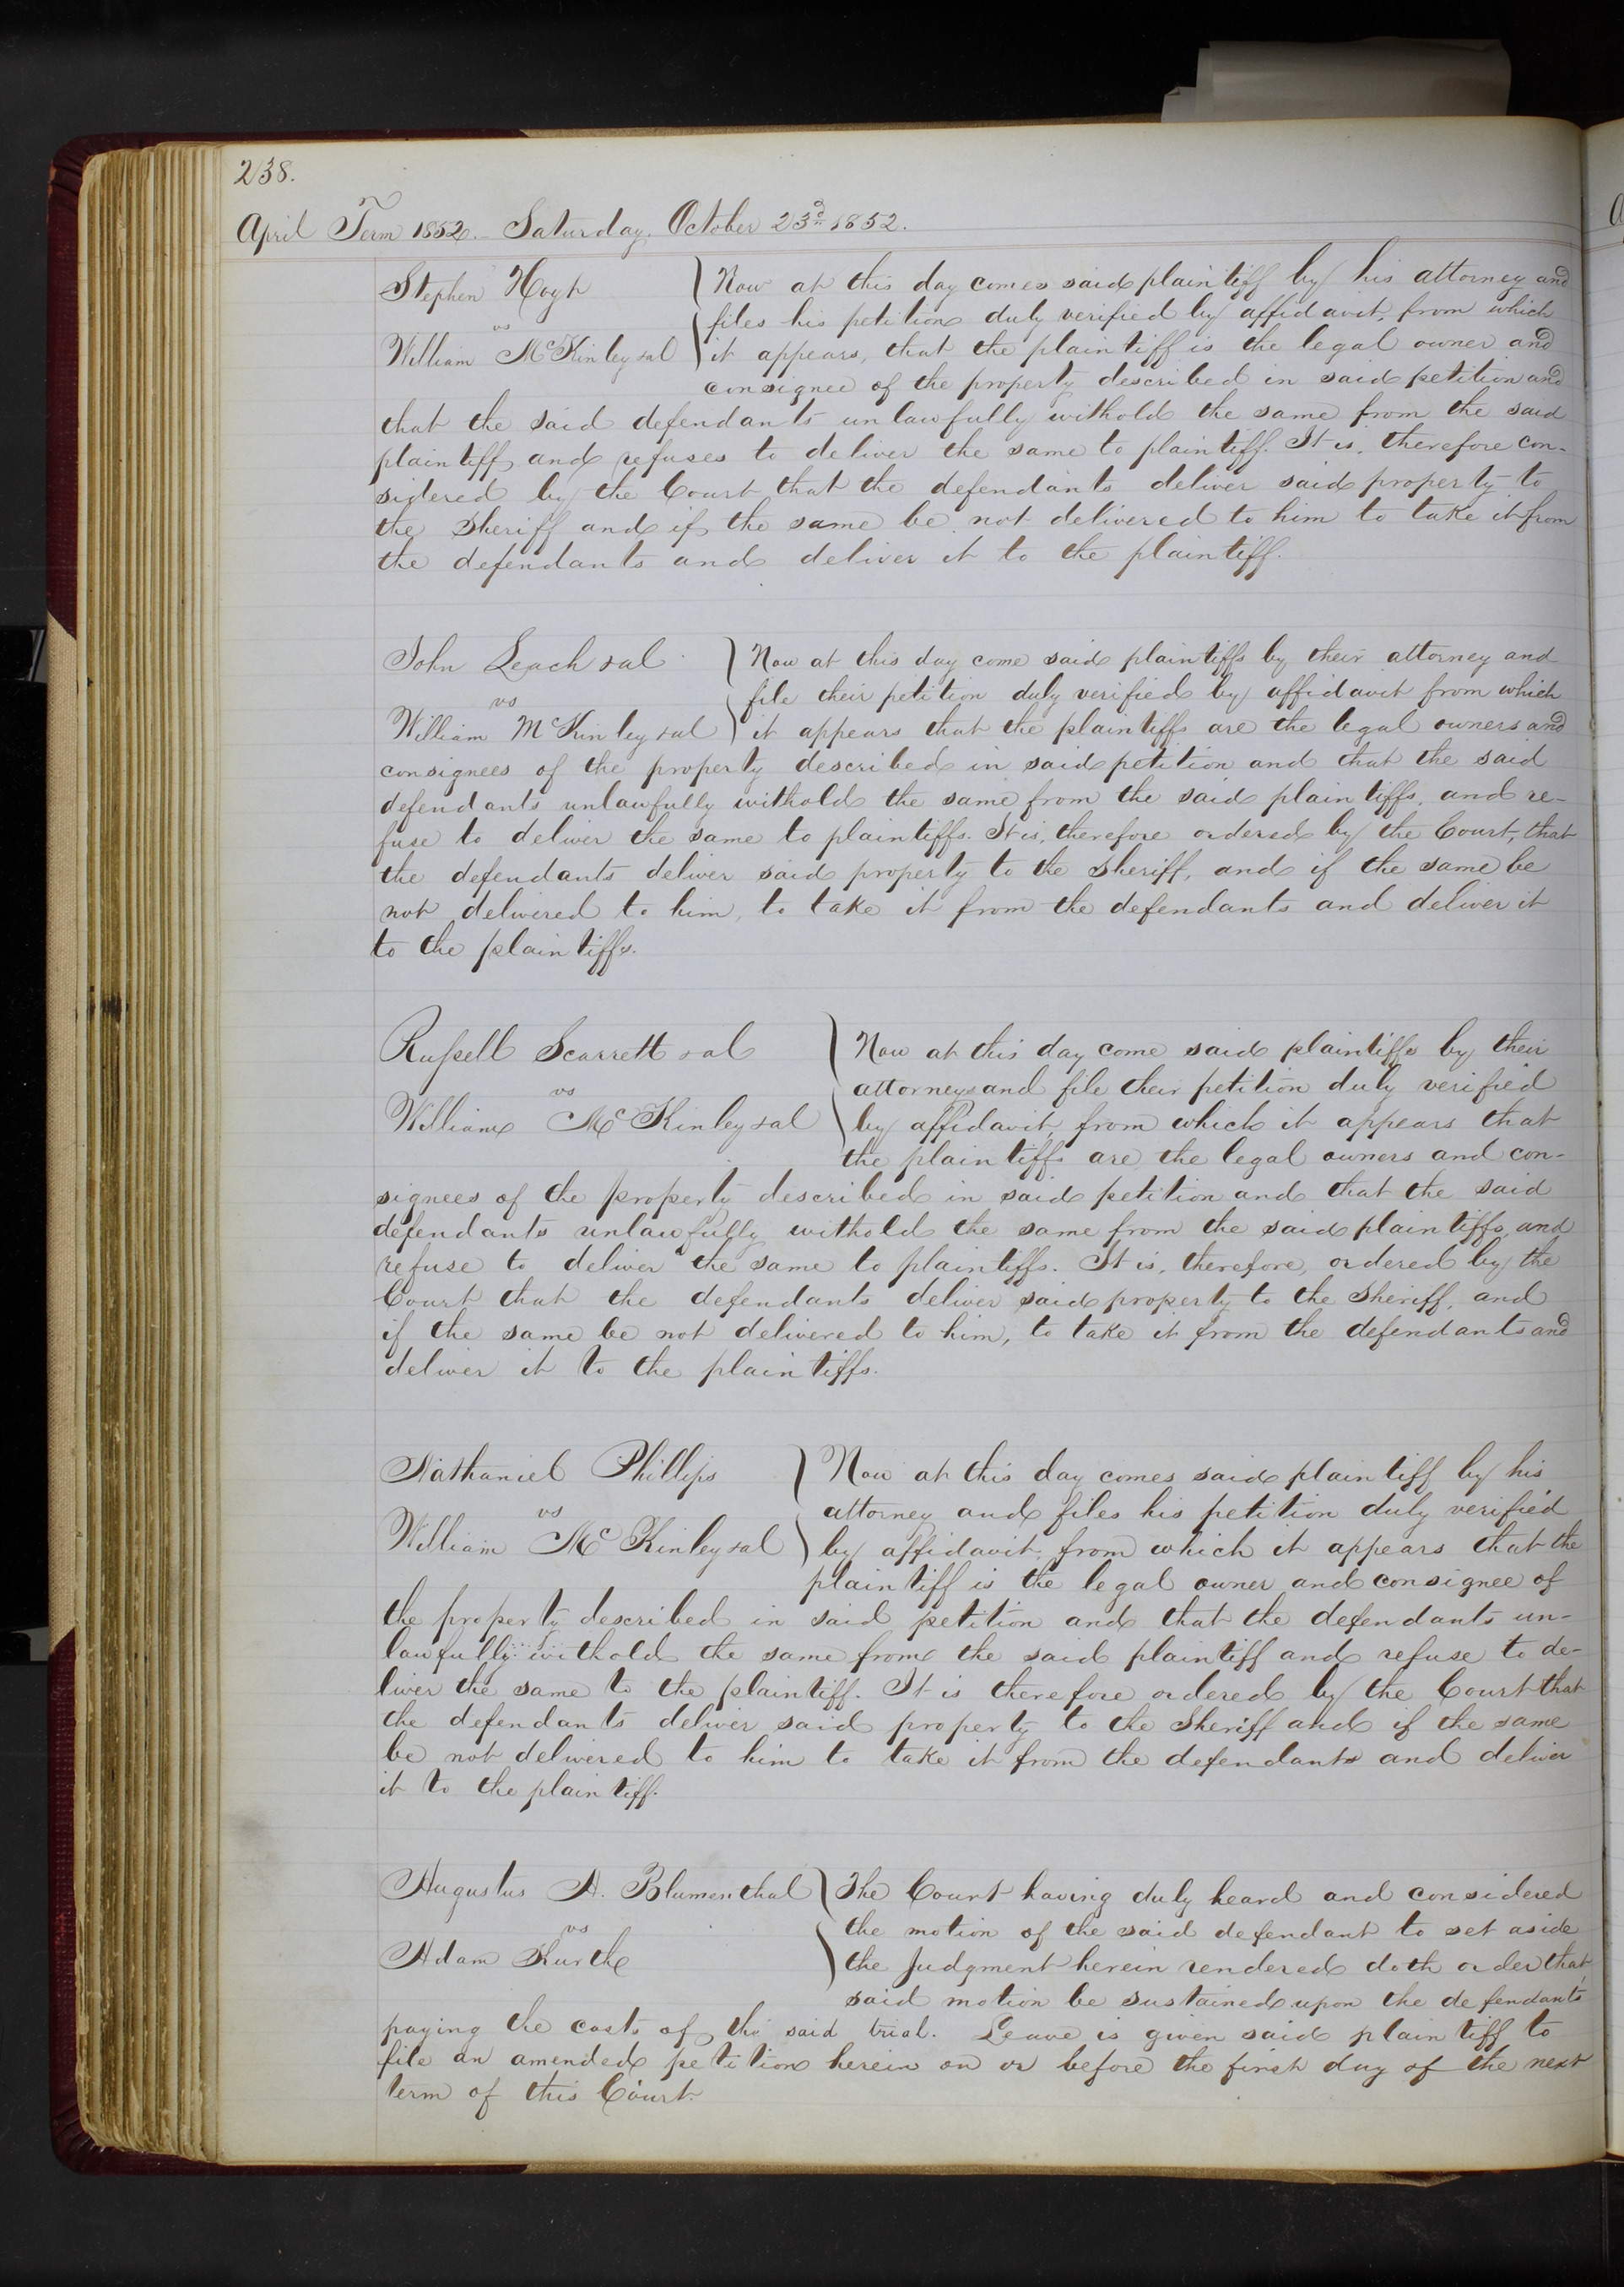 238.
April Term 1852. Saturday. October 23d 1852.
Stephen Hoyt
vs
William McKinley &al
Now at this day comes said plaintiff by his attorney and
files his petition duly verified by affidavit, from which
it appears, that the plaintiff is the legal owner and
consignee of the property described in said petition and
that the said defendants unlawfully withold the same from the said
plaintiff, and refuses to deliver the same to plaintiff. It is, therefore con-
sidered by the Court that the defendants deliver said property to
the Sheriff and if the same be not delivered to him to take it from
the defendants and deliver it to the plaintiff.
John Leach &al
vs
William McKinley &al
Now at this day come said plaintiffs by their attorney and
file their petition duly verified by affidavit from which
it appears that the plaintiffs are the legal owners and
consignees of the property described in said petition and that the said
defendants unlawfully withold the same from the said plaintiffs, and re-
fuse to deliver the same to plaintiffs. It is, therefore ordered by the Court, that
the defendants deliver said property to the Sheriff, and if the same be
not delivered to him, to take it from the defendants and deliver it
to the plaintiffs.
Russell Scarrett &al
vs
William McKinley &al
Now at this day come said plaintiffs by their
attorneys and file their petition duly verified
by affidavit, from which it appears that
the plaintiffs are the legal owners and con-
signees of the property described in said petition and that the said
defendants unlawfully withold the same from the said plaintiffs, and
refuse to deliver the same to plaintiffs. It is, therefore, ordered by the
Court that the defendants deliver said property to the Sheriff, and
if the same be not delivered to him, to take it from the defendants and
deliver it to the plaintiffs.
Nathaniel Phillips
vs
William McKinley &al
Now at this day comes said plaintiff by his
attorney and files his petition duly verified
by affidavit, from which it appears that the
plaintiff is the legal owner and consignee of
the property described in said petition and that the defendants un-
lawfully withold the same from the said plaintiff and refuse to de-
liver the same to the plaintiff. It is therefore ordered by the Court that
the defendants deliver said property to the Sheriff and if the same
be not delivered to him to take it from the defendants and deliver
it to the plaintiff.
Augustus A. Blumenthal
vs
Adam Kurthe
The Court having duly heard and considered
the motion of the said defendant to set aside
the Judgment herein rendered doth order that
said motion be sustained upon the defendants
paying the costs of the said trial. Leave is given said plaintiff to
file an amended petition herein on or before the first day of the next
term of this Court.